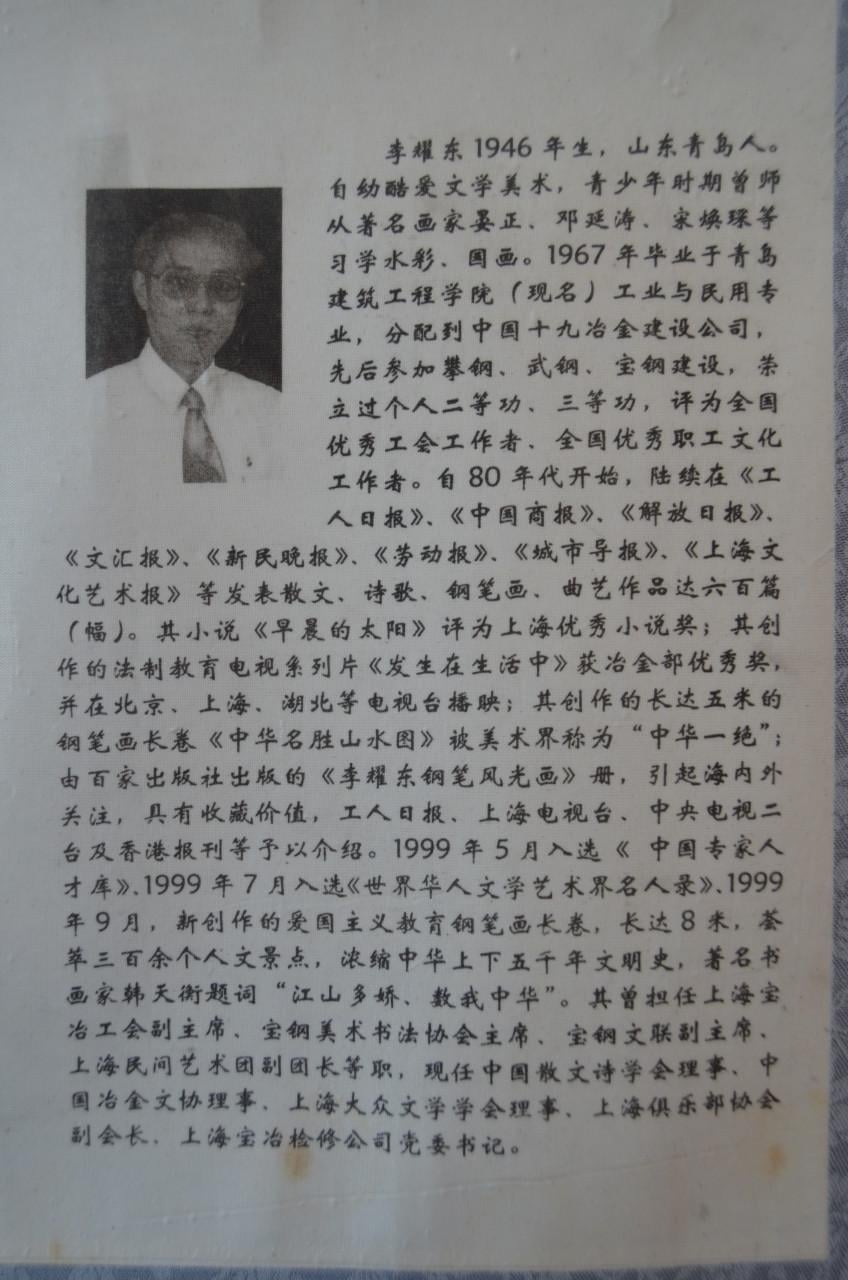 李耀东1946年生，山东青岛人。
自幼酷爱文学美术，青少年时期曾师
从著名画家晏正、邓延涛、宋焕琛等
习学水彩、国画。1967年毕业于青岛
建筑工程学院（现名）工业与民用专
业，分配到中国十九冶金建设公司，
先后参加攀钢、武钢、宝钢建设，荣
立过个人二等功、三等功，评为全国
优秀工会工作者、全国优秀职工文化
工作者。自80年代开始，陆续在《工
人日报》、《中国商报》、《解放日报》、
《文汇报》、《新民晚报》、《劳动报》、《城市导报》、《上海文
化艺术报》等发表散文、诗歌、钢笔画、曲艺作品达六百篇
（幅）。其小说《早晨的太阳》评为上海优秀小说奖；其创
作的法制教育电视系列片《发生在生活中》获冶金部优秀奖，
并在北京、上海、湖北等电视台播映；其创作的长达五米的
钢笔画长卷《中华名胜山水图》被美术界称为“中华一绝”；
由百家出版社出版的《李耀东钢笔风光画》册，引起海内外
关注，具有收藏价值，工人日报、上海电视台、中央电视二
台及香港报刊等予以介绍。1999年5月入选《 中国专家人
才库》、1999年7月入选《世界华人文学艺术界名人录》、1999
年9月，新创作的爱国主义教育钢笔画长卷，长达8米，荟
萃三百余个人文景点，浓缩中华上下五千年文明史，著名书
画家韩天衡题词“江山多娇、数我中华”。其曾担任上海宝
冶工会副主席、宝钢美术书法协会主席、宝钢文联副主席、
上海民间艺术团副团长等职，现任中国散文诗学会理事、中
国冶金文协理事、上海大众文学学会理事、上海俱乐部协会
副会长、上海宝冶检修公司党委书记。